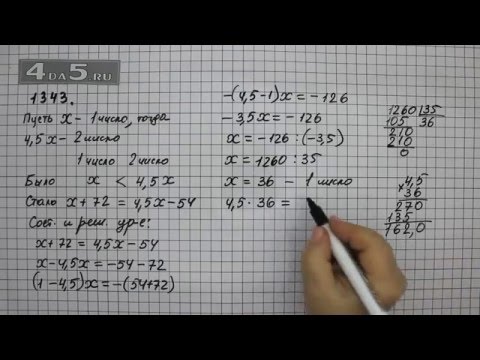 4DA5.RU
1343.
Пусть x – 1 число, тогда
4,5x – 2 число
1 число 2 число
Было x < 4,5x
Стало x + 72 = 4,5x – 54
Сост. и реш. ур-е:
x + 72 = 4,5x – 54
x – 4,5x = –54 – 72
(1 – 4,5)x = –(54+72)
–(4,5–1)x = –126
–3,5x = –126
x = –126 : (–3,5)
x = 1260 : 35
x = 36 – 1 число
4,5 · 36 =
1260 | 35
105 36
210
210
0
× 4,5
36
270
135
162,0